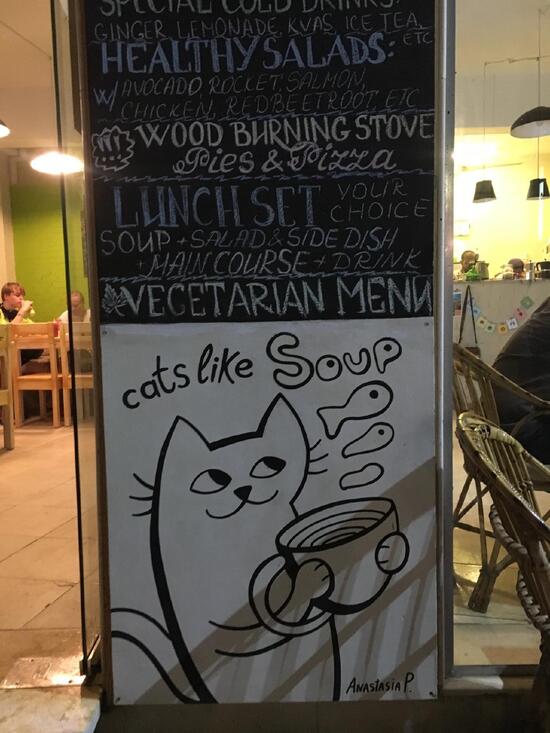 SPECIAL COLD DRINKS:
GINGER, LEMONADE, KVAS, ICE TEA, ETC
HEALTHY SALADS:
W/ AVOCADO, ROCKET, SALMON,
CHICKEN, RED BEETROOT, ETC
WOOD BURNING STOVE
Pies & Pizza
LUNCH SET YOUR CHOICE
SOUP + SALAD & SIDE DISH
+ MAIN COURSE + DRINK
VEGETARIAN MENU
cats like Soup
ANASTASIA P.